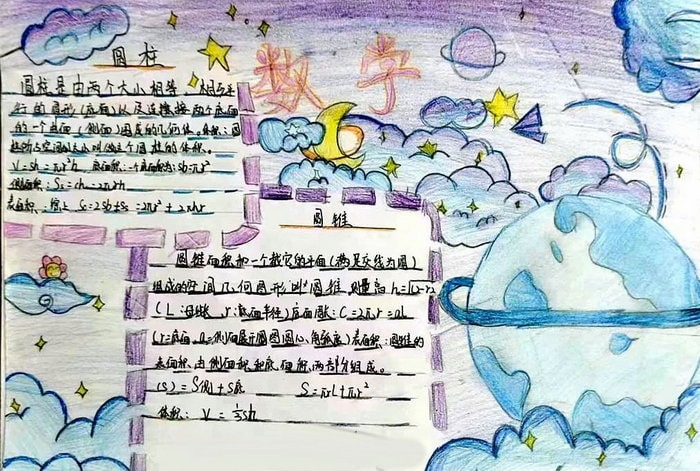 数学
圆柱
圆柱是由两个大小相等、相互平
行的圆形(底面)以及连接两个底面
的一个曲面(侧面)围成的几何体。体积:圆
柱所占空间大小叫做这个圆柱的体积。
V=sh=πr²h 底面积:一个底面积为:Sb=πr²
侧面积: S₂=ch=2πrh
表面积: S=2Sb+S₂=2πr²+2πhr
圆锥
圆锥面积和一个截它的平面(满足交线为圆)
组成的空间几何图形叫圆锥。
(L:母线,r:底面半径)底面周长:C=2πr=αL
(r=底面, α=侧面展开圆圆心角弧度)表面积:圆锥的
表面积由侧面积和底面积两部分组成。
(S)=S侧+S底 S=πrL+πr²
体积: V=⅓sh